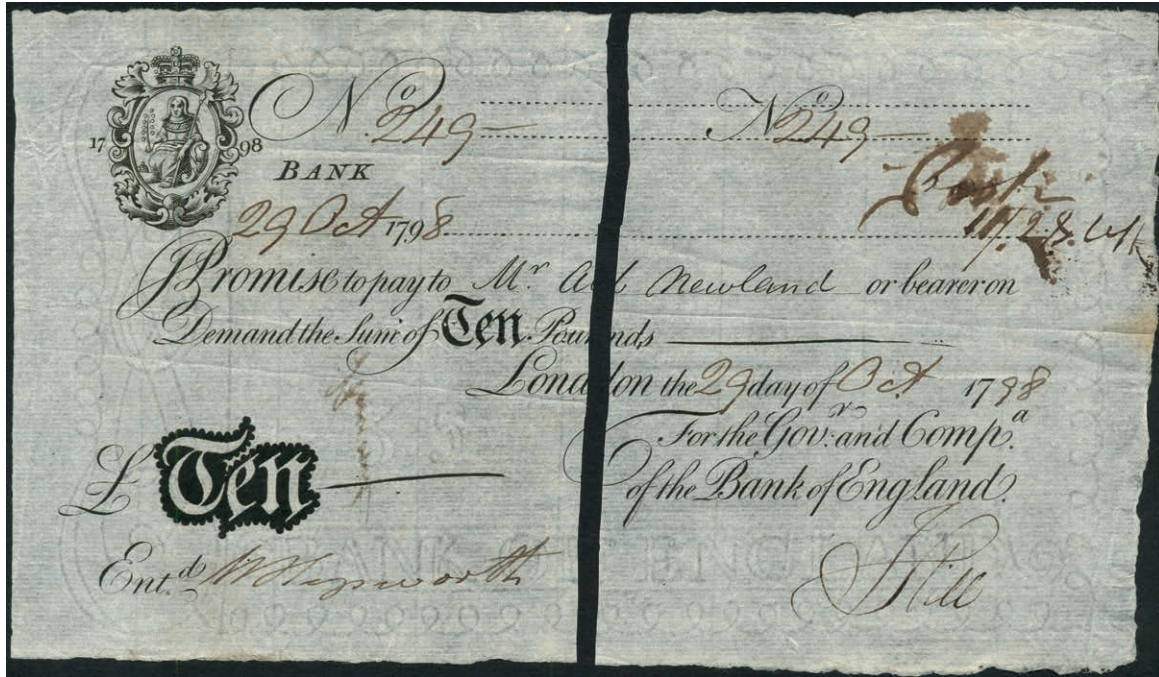 No 249 — No 249 —
17 98
BANK
29 Oct 1798
I Promise to pay to Mr Abd Newland or bearer on
Demand the Sum of Ten Pounds
London the 29 day of Oct 1798
For the Govr: and Compa.
of the Bank of England.
£ Ten
Entd.
J Hill
BANK OF ENGLAND